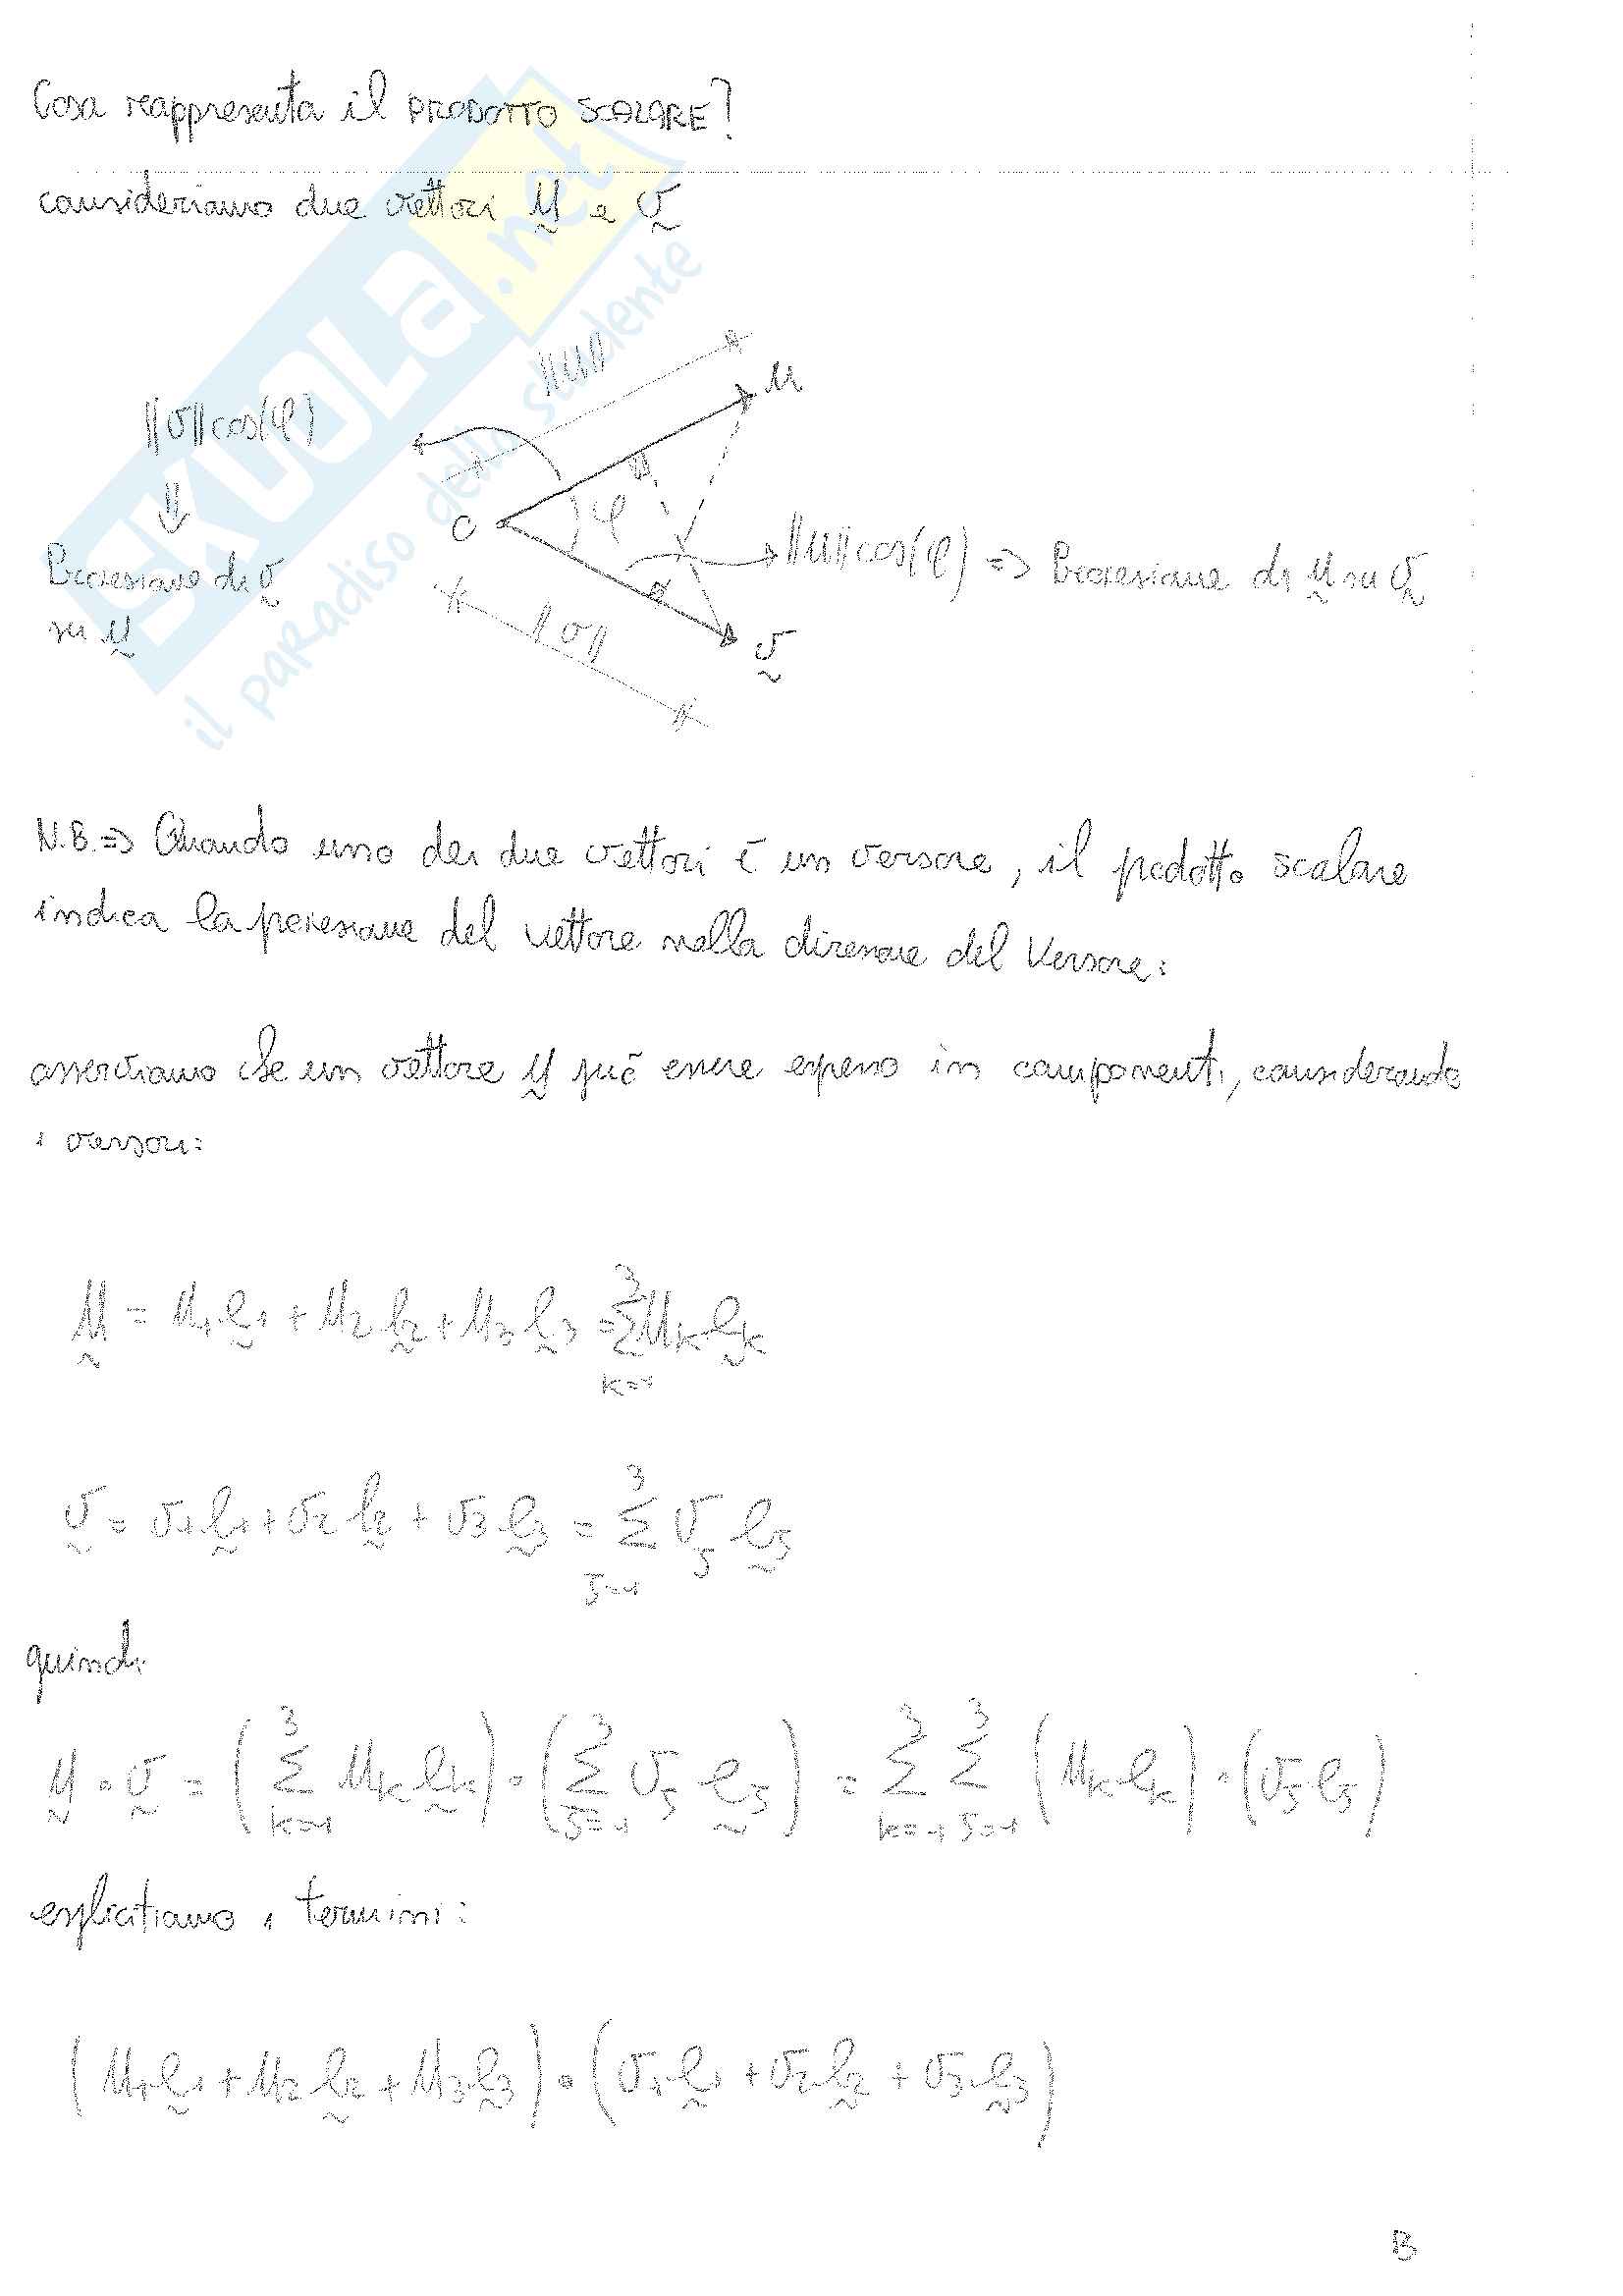 Cosa reappresenta il PRODOTTO SCALARE?
consideriamo due vettori u e v
SKUOLA.net
il paradiso dello studente
||u||
u
||v|| cos(φ)
⇓
Proiezione di v
su u
O
φ
||u|| cos(φ) => Proiezione di u su v
||v||
v
N.B. => Quando uno dei due vettori è un versore, il pedotto scalare
indica la peoiezione del vettore nella direzione del Versore:
osserviamo che un vettore u può essere espresso in componenti, considerando
i versori:
u = u₁e₁ + u₂e₂ + u₃e₃ = Σ³ₖ₌₁ uₖeₖ
v = v₁e₁ + v₂e₂ + v₃e₃ = Σ³ⱼ₌₁ vⱼeⱼ
quindi
u • v = (Σ³ₖ₌₁ uₖeₖ) • (Σ³ⱼ₌₁ vⱼeⱼ) = Σ³ₖ₌₁ Σ³ⱼ₌₁ (uₖeₖ) • (vⱼeⱼ)
esplicitiamo i termini:
(u₁e₁ + u₂e₂ + u₃e₃) • (v₁e₁ + v₂e₂ + v₃e₃)